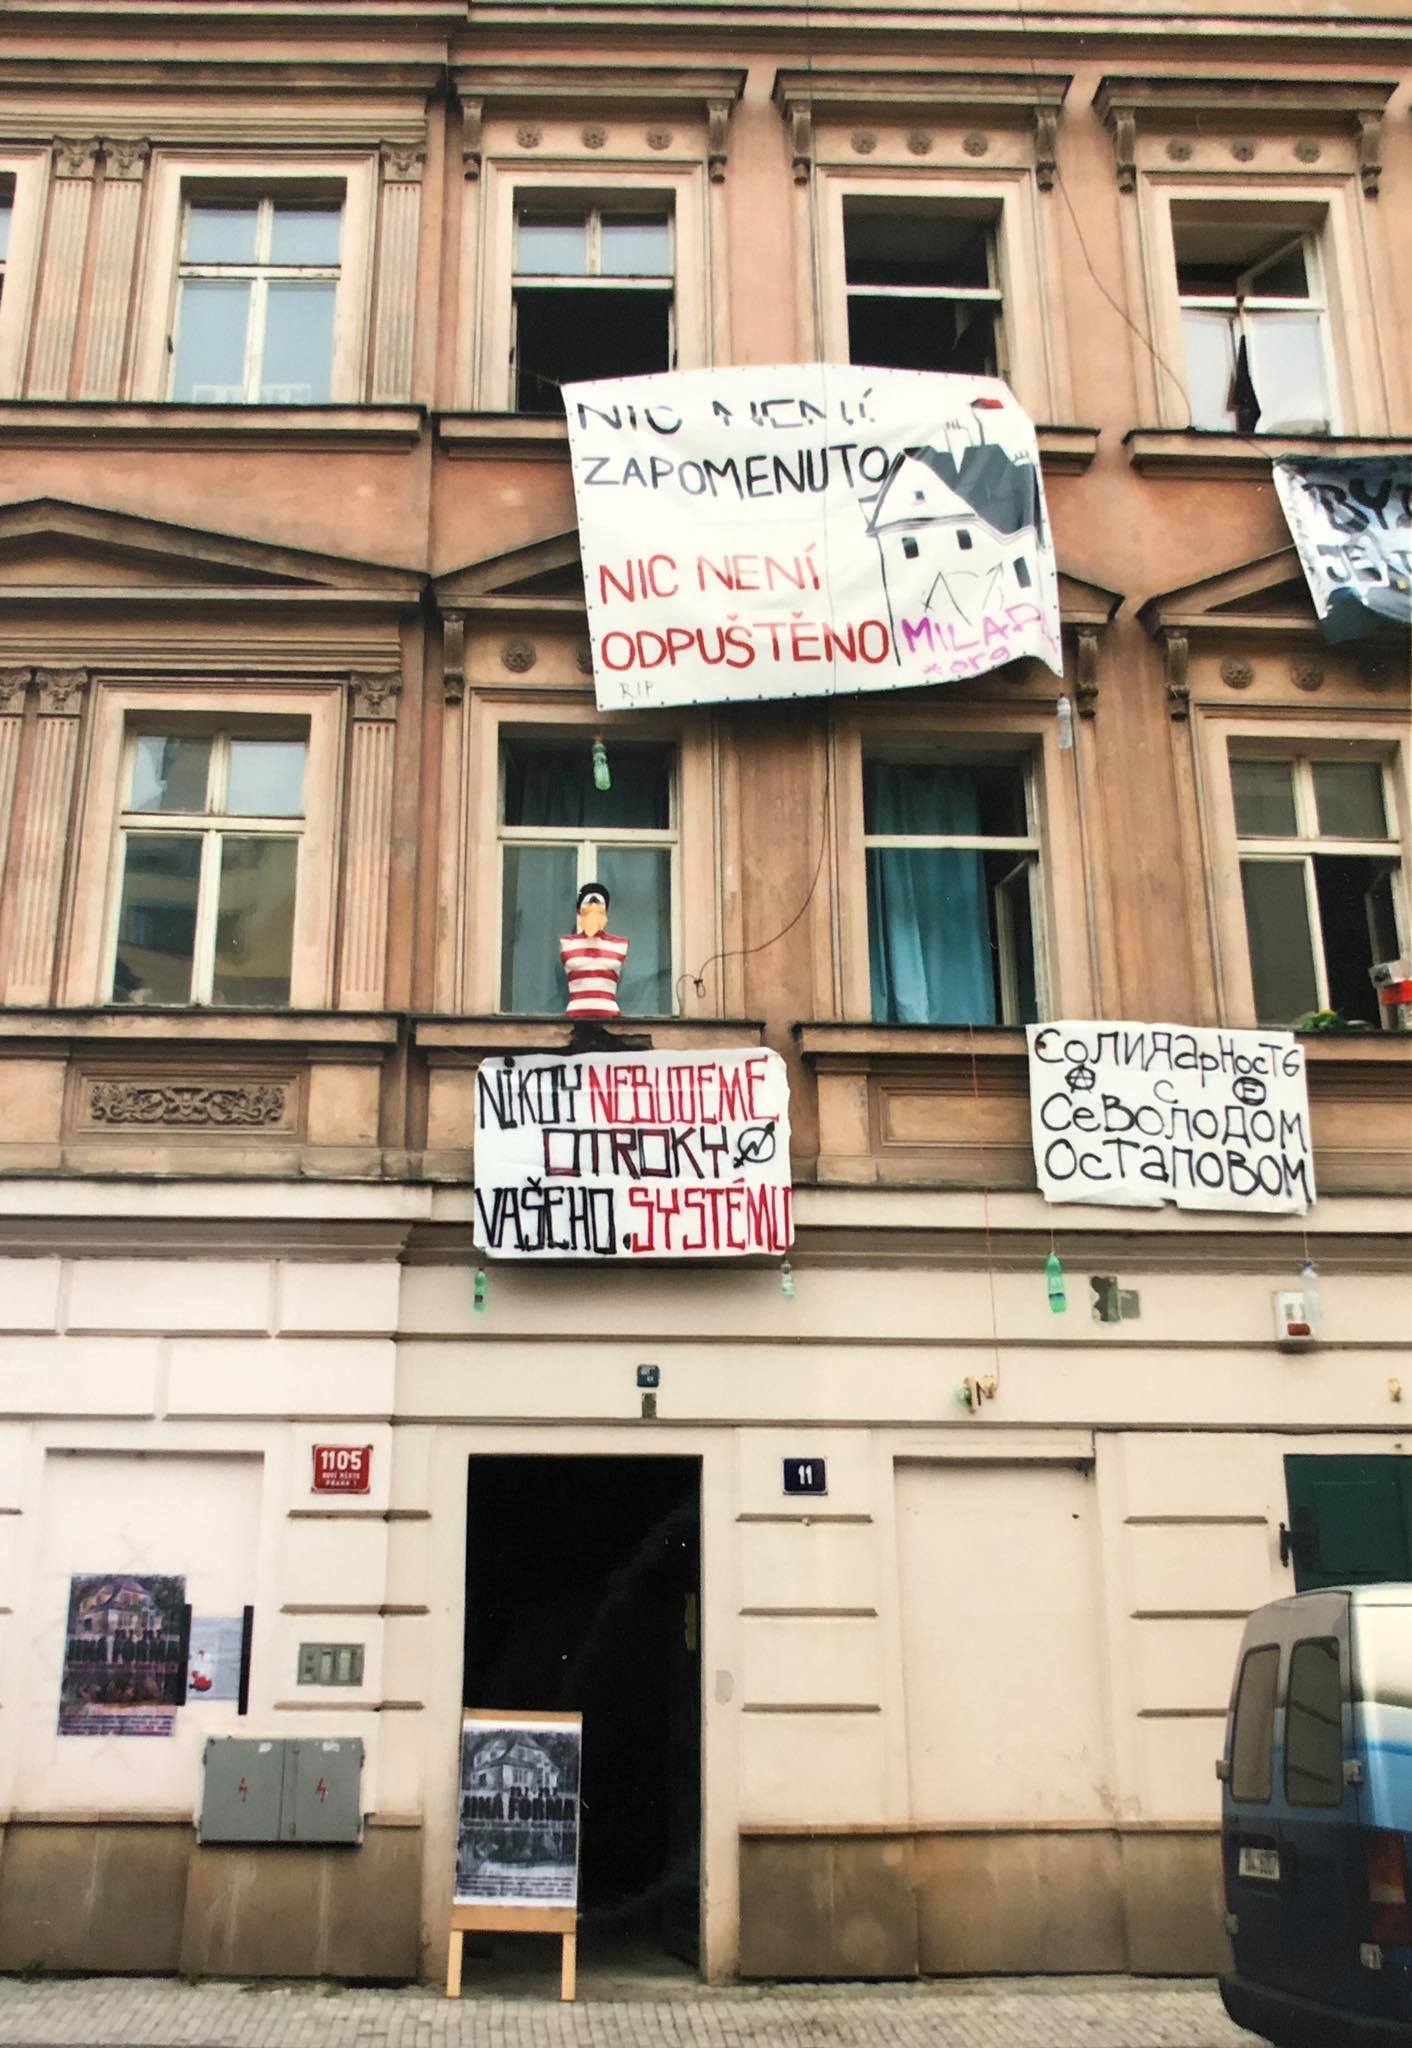 NIC NENÍ
ZAPOMENUTO
NIC NENÍ
ODPUŠTĚNO
RIP
MILADA
*org
BYD
JE
NIKDY NEBUDEME
OTROKY
VAŠEHO SYSTÉMU
СОЛИДАРНОСТЬ
С
СЕВОЛОДОМ
ОСТАПОВОМ
1105
NOVÉ MĚSTO
PRAHA 1
11
JINÁ FORMA
JINÁ FORMA